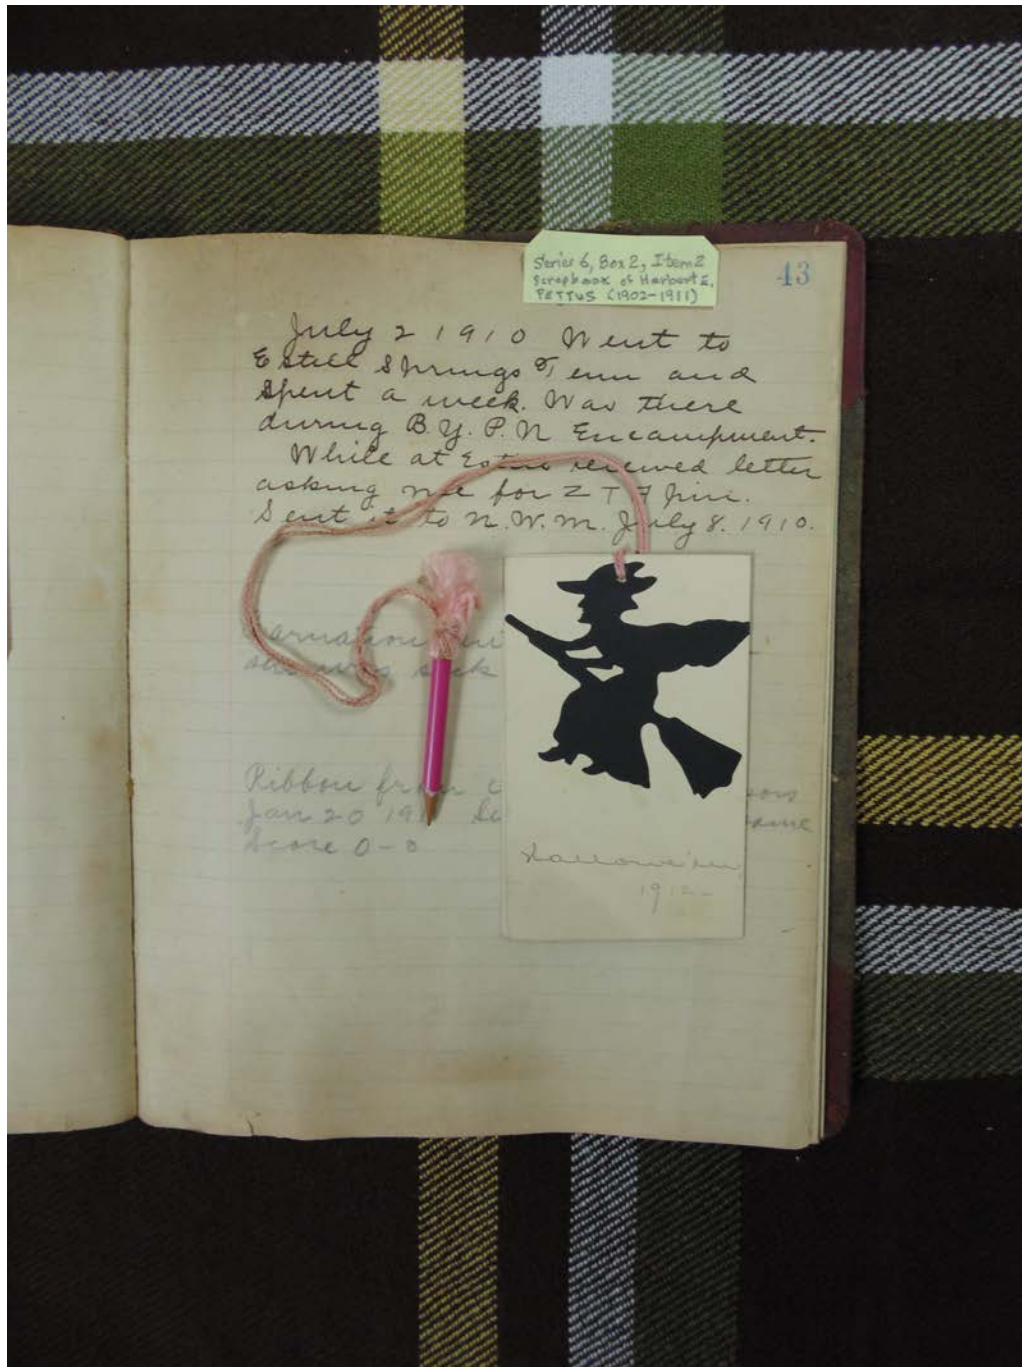 Series 6, Box 2, Item 2
Scrapbook of Herbert E.
PETTUS (1902-1911)
43
July 2 1910 Went to
Estill Springs Tenn and
Spent a week. Was there
during B.Y.P.U Encampment.
While at Estill received letter
asking me for Z T A pin.
Sent it to N.W.M. July 8. 1910.
Carnation
she was sick
Ribbon from
Jan 20 19 game
Score 0-0
Hallowe'en
1912-